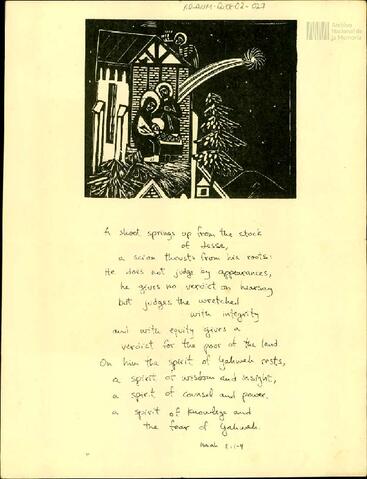 Archivo
Nacional de
la Memoria
A shoot springs up from the stock
of Jesse,
a scion thrusts from his roots:
He does not judge by appearances,
he gives no verdict on hearsay
but judges the wretched
with integrity
and with equity gives a
verdict for the poor of the land
On him the spirit of Yahweh rests,
a spirit of wisdom and insight,
a spirit of counsel and power.
a spirit of knowledge and
the fear of Yahweh.
Isaiah